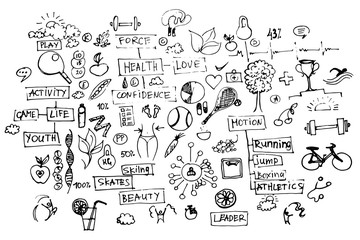 PLAY
FORCE
43%
HEALTH
LOVE
ACTIVITY
CONFIDENCE
GAME
LIFE
10%
MOTION
YOUTH
PP
Running
50%
Jump
Skiing
Boxing
100%
SKATES
ATHLETICS
BEAUTY
LEADER